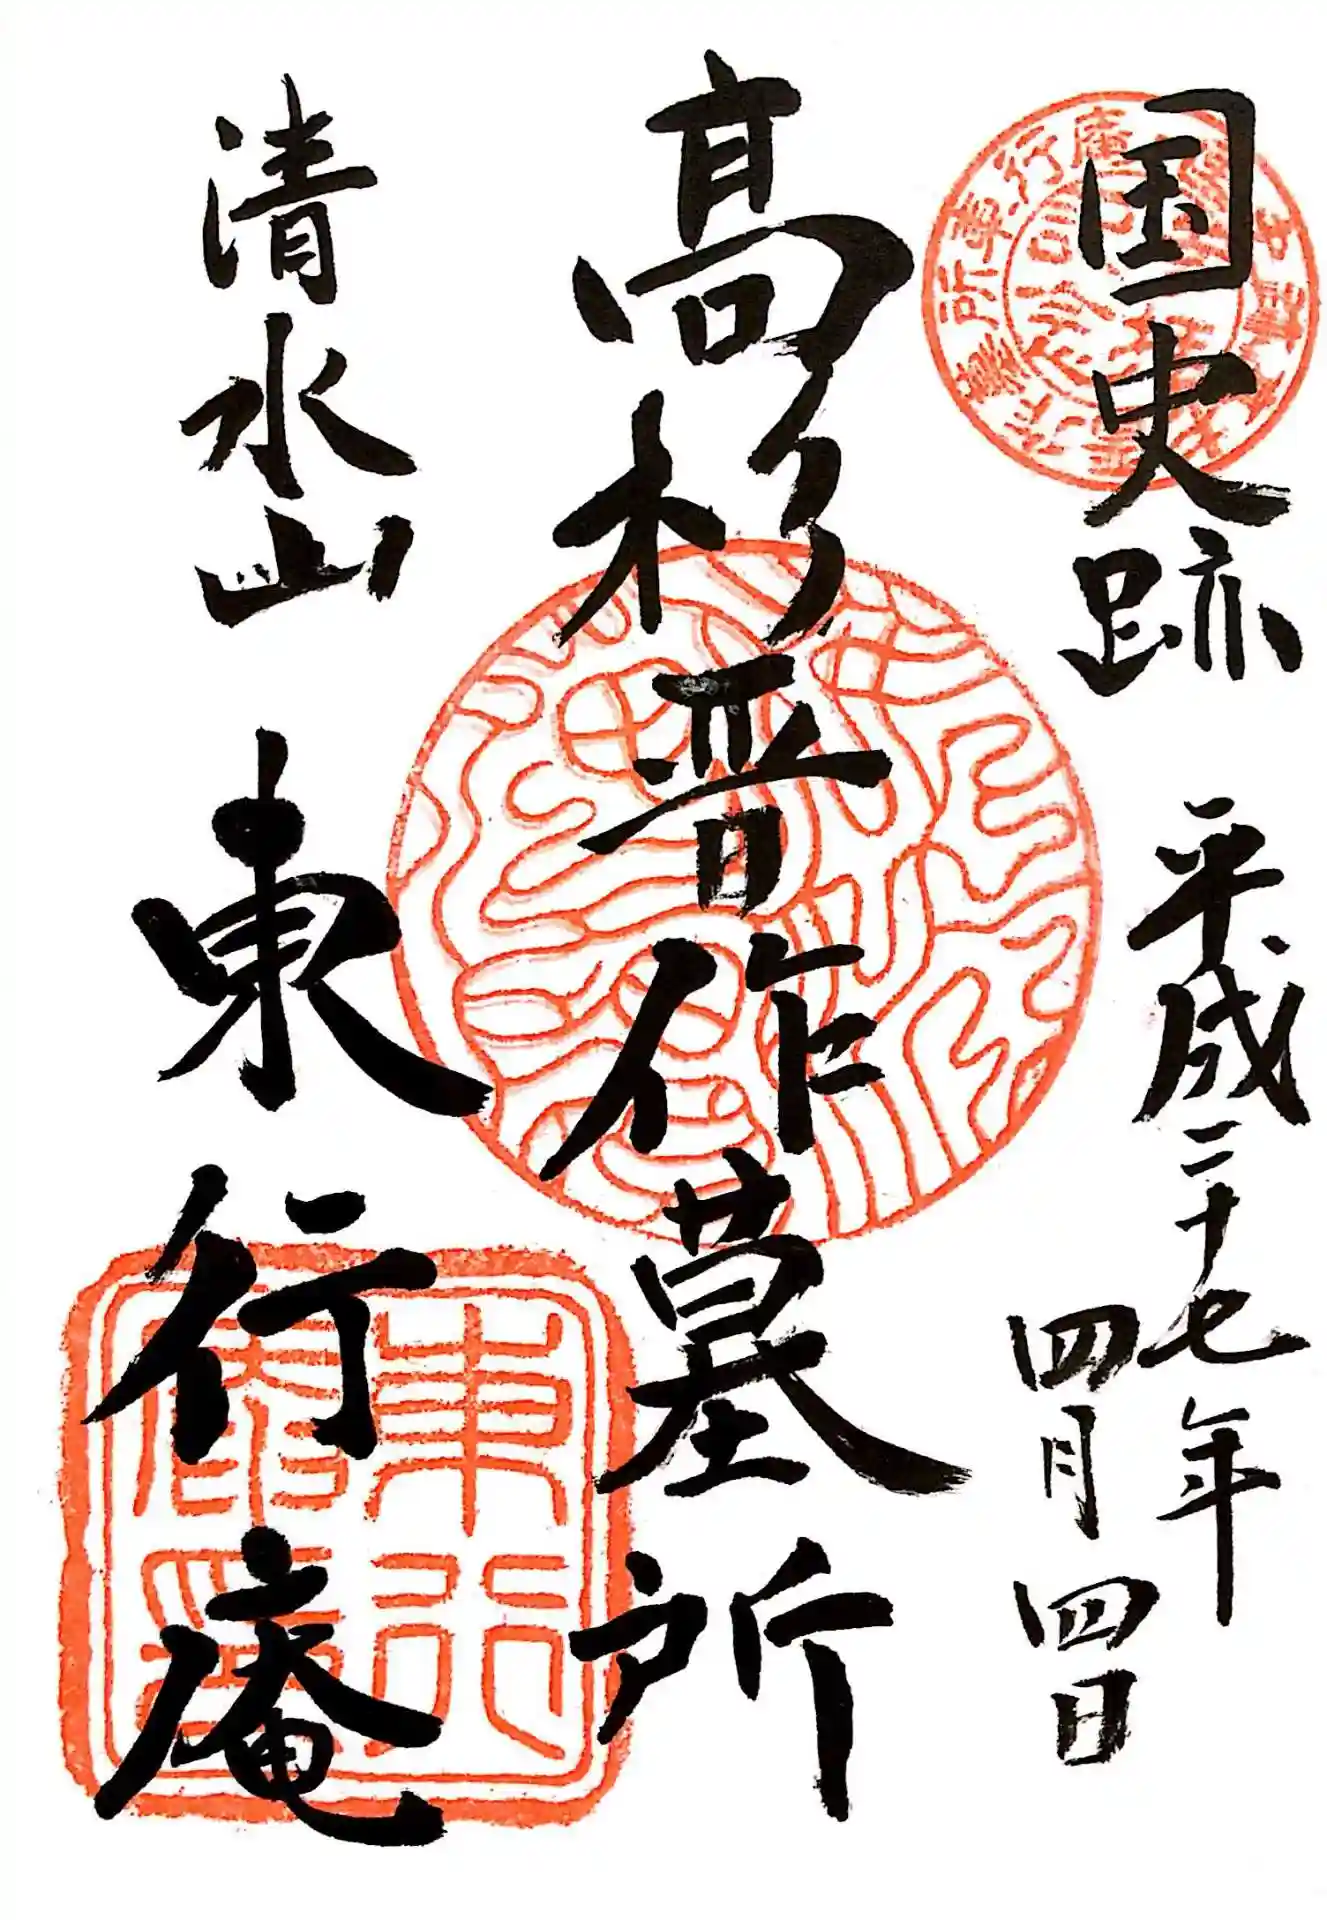 国史跡
平成二十七年
四月四日
高杉晋作墓所
清水山
東行庵
東行庵印